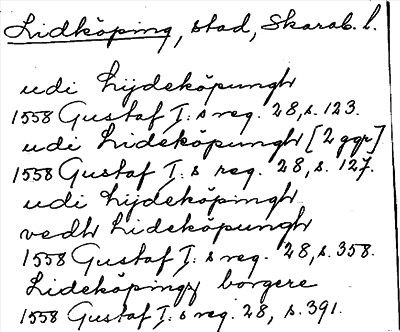 Lidköping, stad, Skarab. l.
udi Lijdeköpungh
1558 Gustaf I:s reg. 28, s. 123.
udi Lideköpungh [2 ggr]
1558 Gustaf I:s reg. 28, s. 127.
udi Lijdeköpingh
vedh Lideköpungh
1558 Gustaf I:s reg. 28, s. 358.
Lideköpings borgere
1558 Gustaf I:s reg. 28, s. 391.